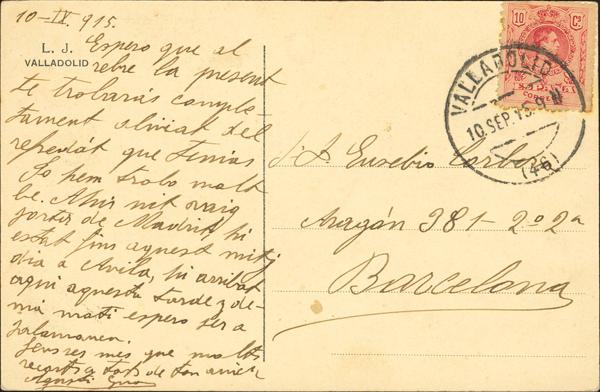 10-IX. 915.
L. J.
VALLADOLID
Espero que al
rebre la present
te trobarás comple
tament aliviat del
refredát que tenias
Jo hem trobo molt
be. Ahir nit vaig
sortir de Madrit, hi
estat fins aquest mitj
dia a Avila, hi arribat
aqui aquesta tarde y de-
má matí espero ser a
Salamanca.
Senses mes que molts
recorts y tots de ton amich
Agustí
10 Cs.
CORREOS
VALLADOLID
10.SEP.15.9.N
(46)
Sr D. Eusebio Corbera
Aragón 381-2º2ª
Barcelona